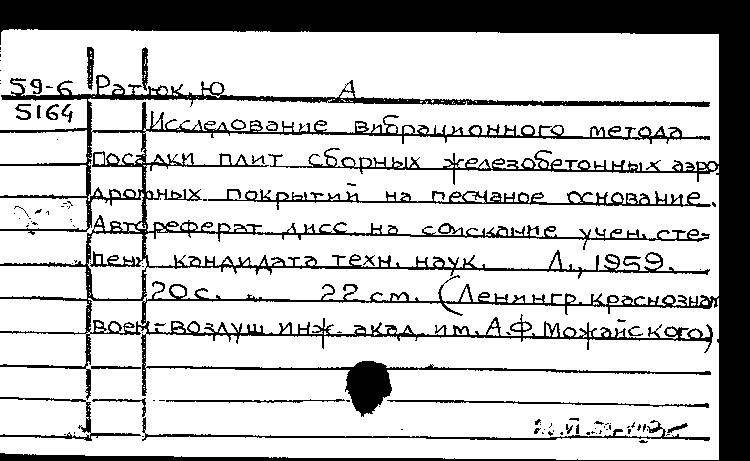 59-6 Ратюк, Ю А
5164
Исследование вибрационного метода
посадки плит сборных железобетонных аэро
дромных покрытий на песчаное основание.
Автореферат дисс на соискание учен. сте-
пени кандидата техн. наук. Л., 1959.
20 с. 22 см. (Ленингр. краснознам
воен-воздуш. инж. акад. им. А.Ф. Можайского).